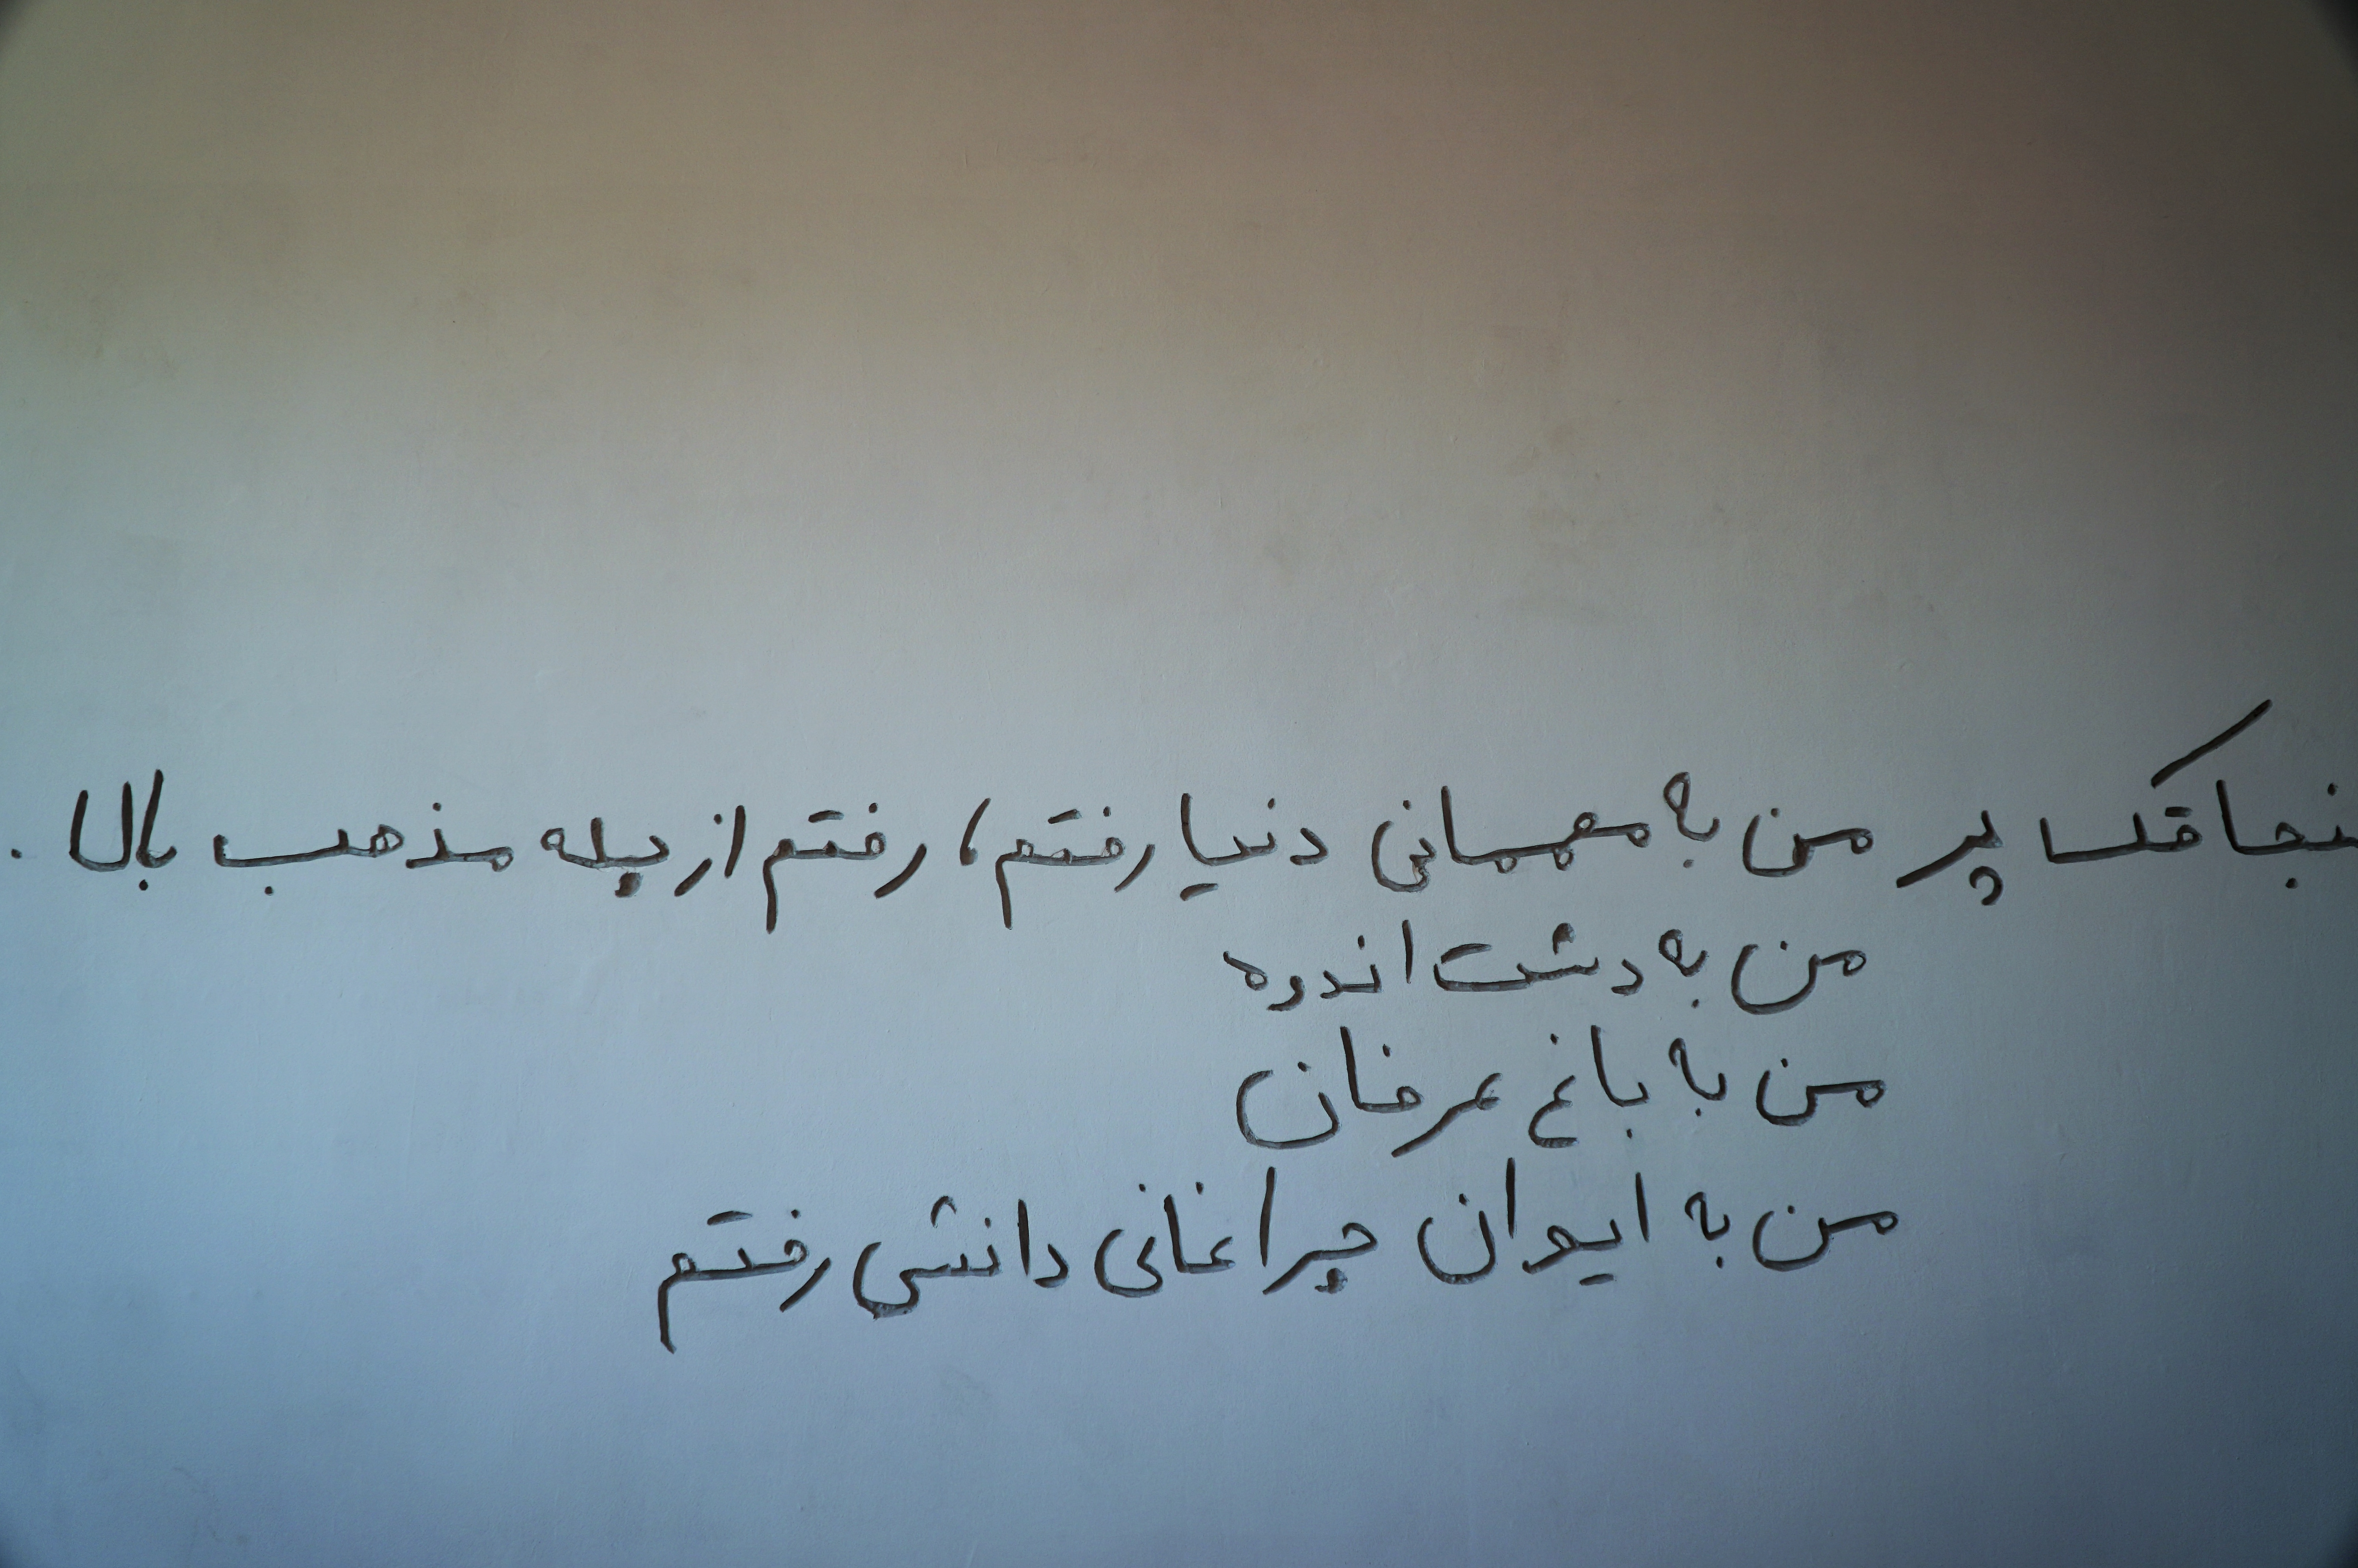 سنجاقک پر من به مهمانی دنیا رفتم، رفتم از پله مذهب بالا.
من به دشت اندوه
من به باغ عرفان
من به ایوان چراغانی دانش رفتم